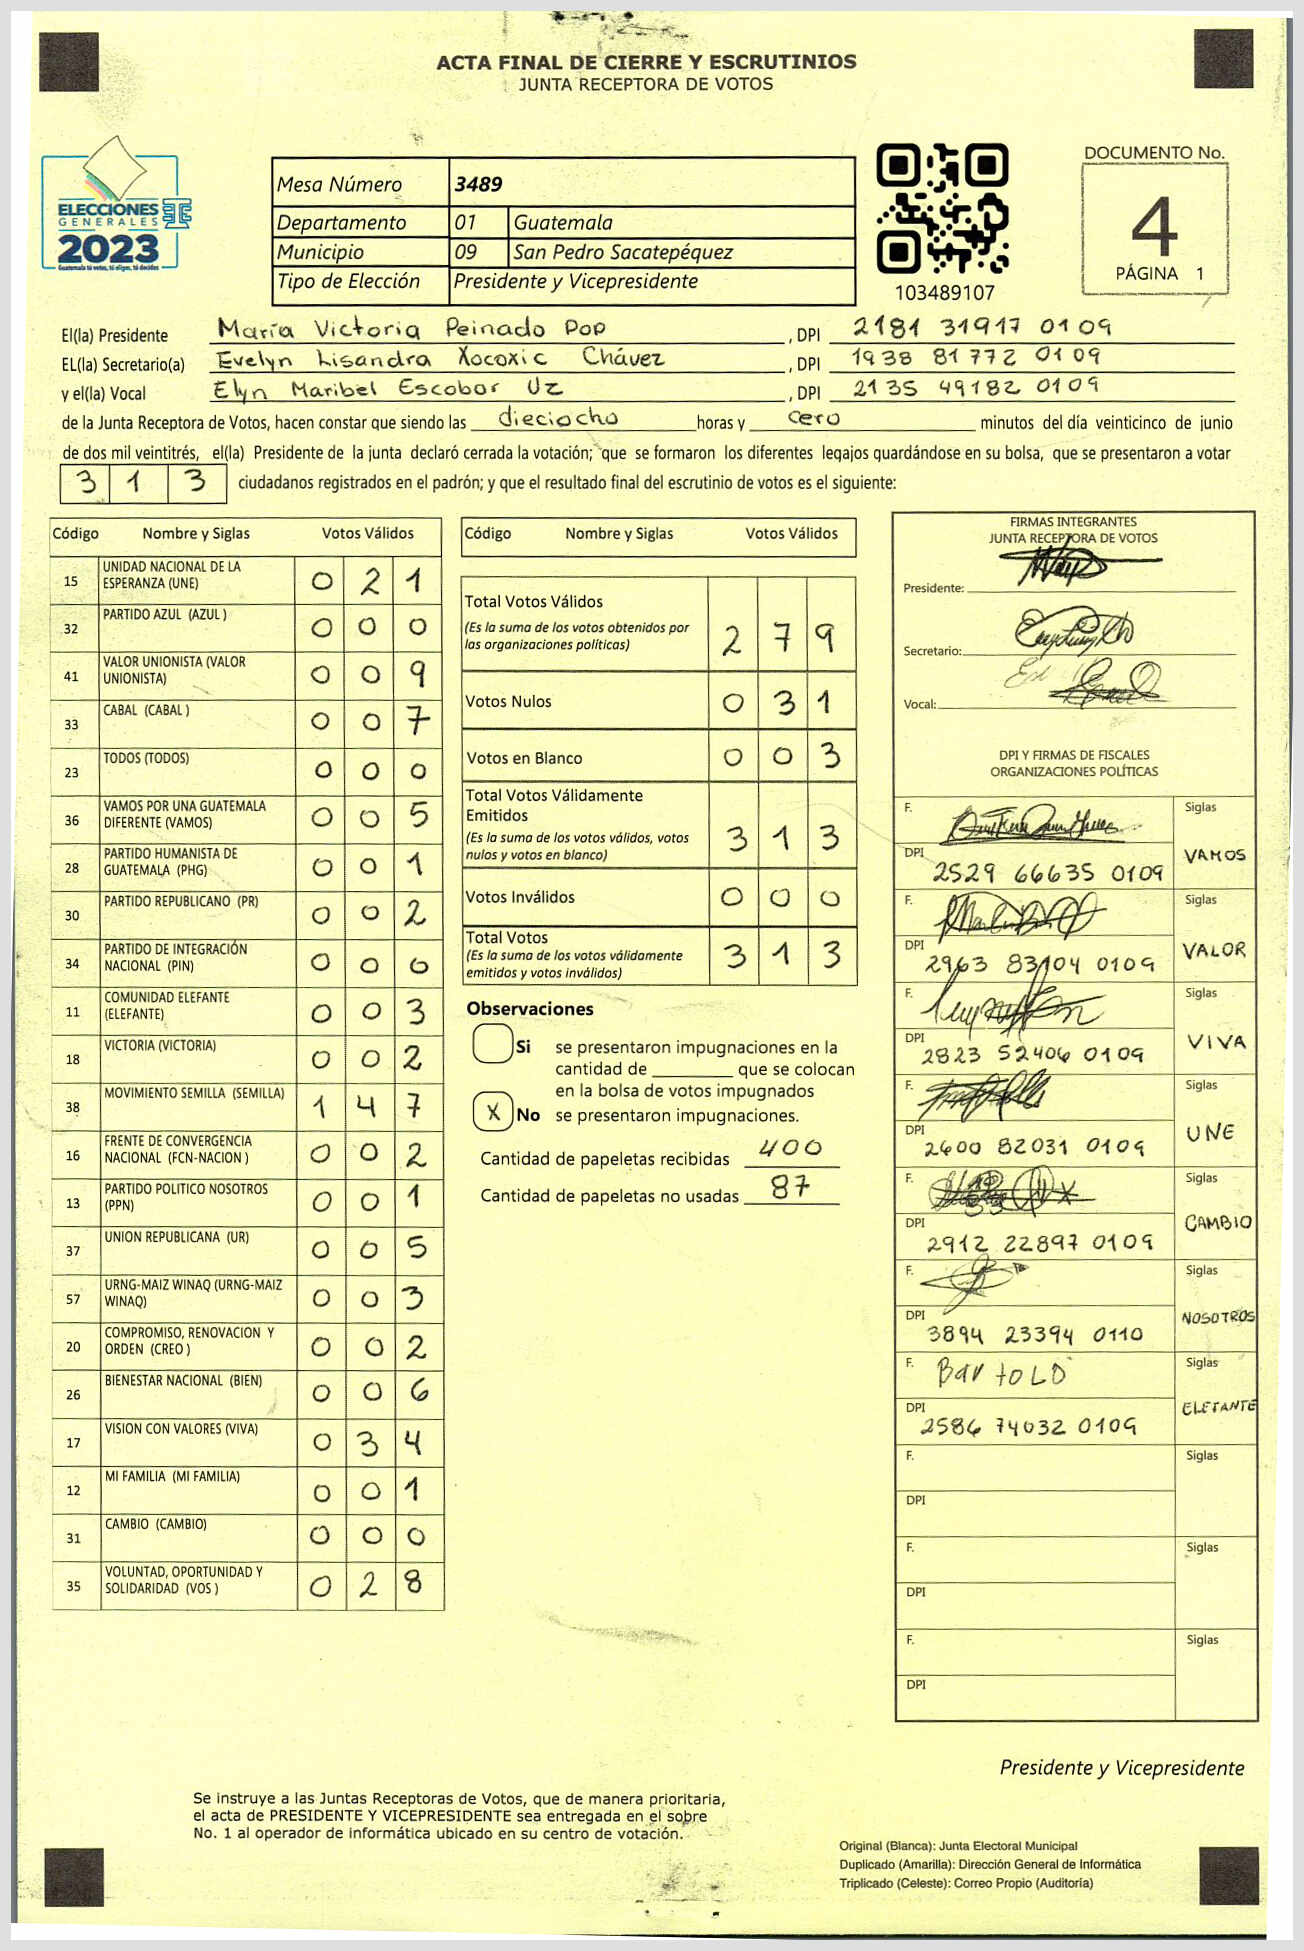 ACTA FINAL DE CIERRE Y ESCRUTINIOS
JUNTA RECEPTORA DE VOTOS
ELECCIONES
GENERALES
2023
Guatemala tú votas, tú eliges, tú decides
Mesa Número 3489
Departamento 01 Guatemala
Municipio 09 San Pedro Sacatepéquez
Tipo de Elección Presidente y Vicepresidente
103489107
DOCUMENTO No.
4
PÁGINA 1
El(la) Presidente María Victoria Peinado Pop , DPI 2181 31917 0109
EL(la) Secretario(a) Evelyn Lisandra Xocoxic Chávez , DPI 1938 81772 0109
y el(la) Vocal Elyn Maribel Escobar Uz , DPI 2135 49182 0109
de la Junta Receptora de Votos, hacen constar que siendo las dieciocho horas y cero minutos del día veinticinco de junio
de dos mil veintitrés, el(la) Presidente de la junta declaró cerrada la votación; que se formaron los diferentes legajos guardándose en su bolsa, que se presentaron a votar
3 1 3 ciudadanos registrados en el padrón; y que el resultado final del escrutinio de votos es el siguiente:
Código Nombre y Siglas Votos Válidos
15 UNIDAD NACIONAL DE LA ESPERANZA (UNE) 0 2 1
32 PARTIDO AZUL (AZUL ) 0 0 0
41 VALOR UNIONISTA (VALOR UNIONISTA) 0 0 9
33 CABAL (CABAL ) 0 0 7
23 TODOS (TODOS) 0 0 0
36 VAMOS POR UNA GUATEMALA DIFERENTE (VAMOS) 0 0 5
28 PARTIDO HUMANISTA DE GUATEMALA (PHG) 0 0 1
30 PARTIDO REPUBLICANO (PR) 0 0 2
34 PARTIDO DE INTEGRACIÓN NACIONAL (PIN) 0 0 0
11 COMUNIDAD ELEFANTE (ELEFANTE) 0 0 3
18 VICTORIA (VICTORIA) 0 0 2
38 MOVIMIENTO SEMILLA (SEMILLA) 1 4 7
16 FRENTE DE CONVERGENCIA NACIONAL (FCN-NACION ) 0 0 2
13 PARTIDO POLITICO NOSOTROS (PPN) 0 0 1
37 UNION REPUBLICANA (UR) 0 0 5
57 URNG-MAIZ WINAQ (URNG-MAIZ WINAQ) 0 0 3
20 COMPROMISO, RENOVACION Y ORDEN (CREO ) 0 0 2
26 BIENESTAR NACIONAL (BIEN) 0 0 6
17 VISION CON VALORES (VIVA) 0 3 4
12 MI FAMILIA (MI FAMILIA) 0 0 1
31 CAMBIO (CAMBIO) 0 0 0
35 VOLUNTAD, OPORTUNIDAD Y SOLIDARIDAD (VOS ) 0 2 8
Código Nombre y Siglas Votos Válidos
Total Votos Válidos
(Es la suma de los votos obtenidos por
las organizaciones políticas) 2 7 9
Votos Nulos 0 3 1
Votos en Blanco 0 0 3
Total Votos Válidamente
Emitidos
(Es la suma de los votos válidos, votos
nulos y votos en blanco) 3 1 3
Votos Inválidos 0 0 0
Total Votos
(Es la suma de los votos válidamente
emitidos y votos inválidos) 3 1 3
Observaciones
Si se presentaron impugnaciones en la
cantidad de ________ que se colocan
en la bolsa de votos impugnados
X No se presentaron impugnaciones.
Cantidad de papeletas recibidas 400
Cantidad de papeletas no usadas 87
FIRMAS INTEGRANTES
JUNTA RECEPTORA DE VOTOS
Presidente:
Secretario:
Vocal:
DPI Y FIRMAS DE FISCALES
ORGANIZACIONES POLÍTICAS
F. Siglas
DPI 2529 66635 0109 VAMOS
F. Siglas
DPI 2963 83104 0109 VALOR
F. Siglas
DPI 2823 52406 0109 VIVA
F. Siglas
DPI 2600 82031 0109 UNE
F. Siglas
DPI 2912 22897 0109 CAMBIO
F. Siglas
DPI 3894 23394 0110 NOSOTROS
F. Bartolo Siglas
DPI 2586 74032 0109 ELEFANTE
F. Siglas
DPI
F. Siglas
DPI
F. Siglas
DPI
Presidente y Vicepresidente
Se instruye a las Juntas Receptoras de Votos, que de manera prioritaria,
el acta de PRESIDENTE Y VICEPRESIDENTE sea entregada en el sobre
No. 1 al operador de informática ubicado en su centro de votación.
Original (Blanca): Junta Electoral Municipal
Duplicado (Amarilla): Dirección General de Informática
Triplicado (Celeste): Correo Propio (Auditoría)